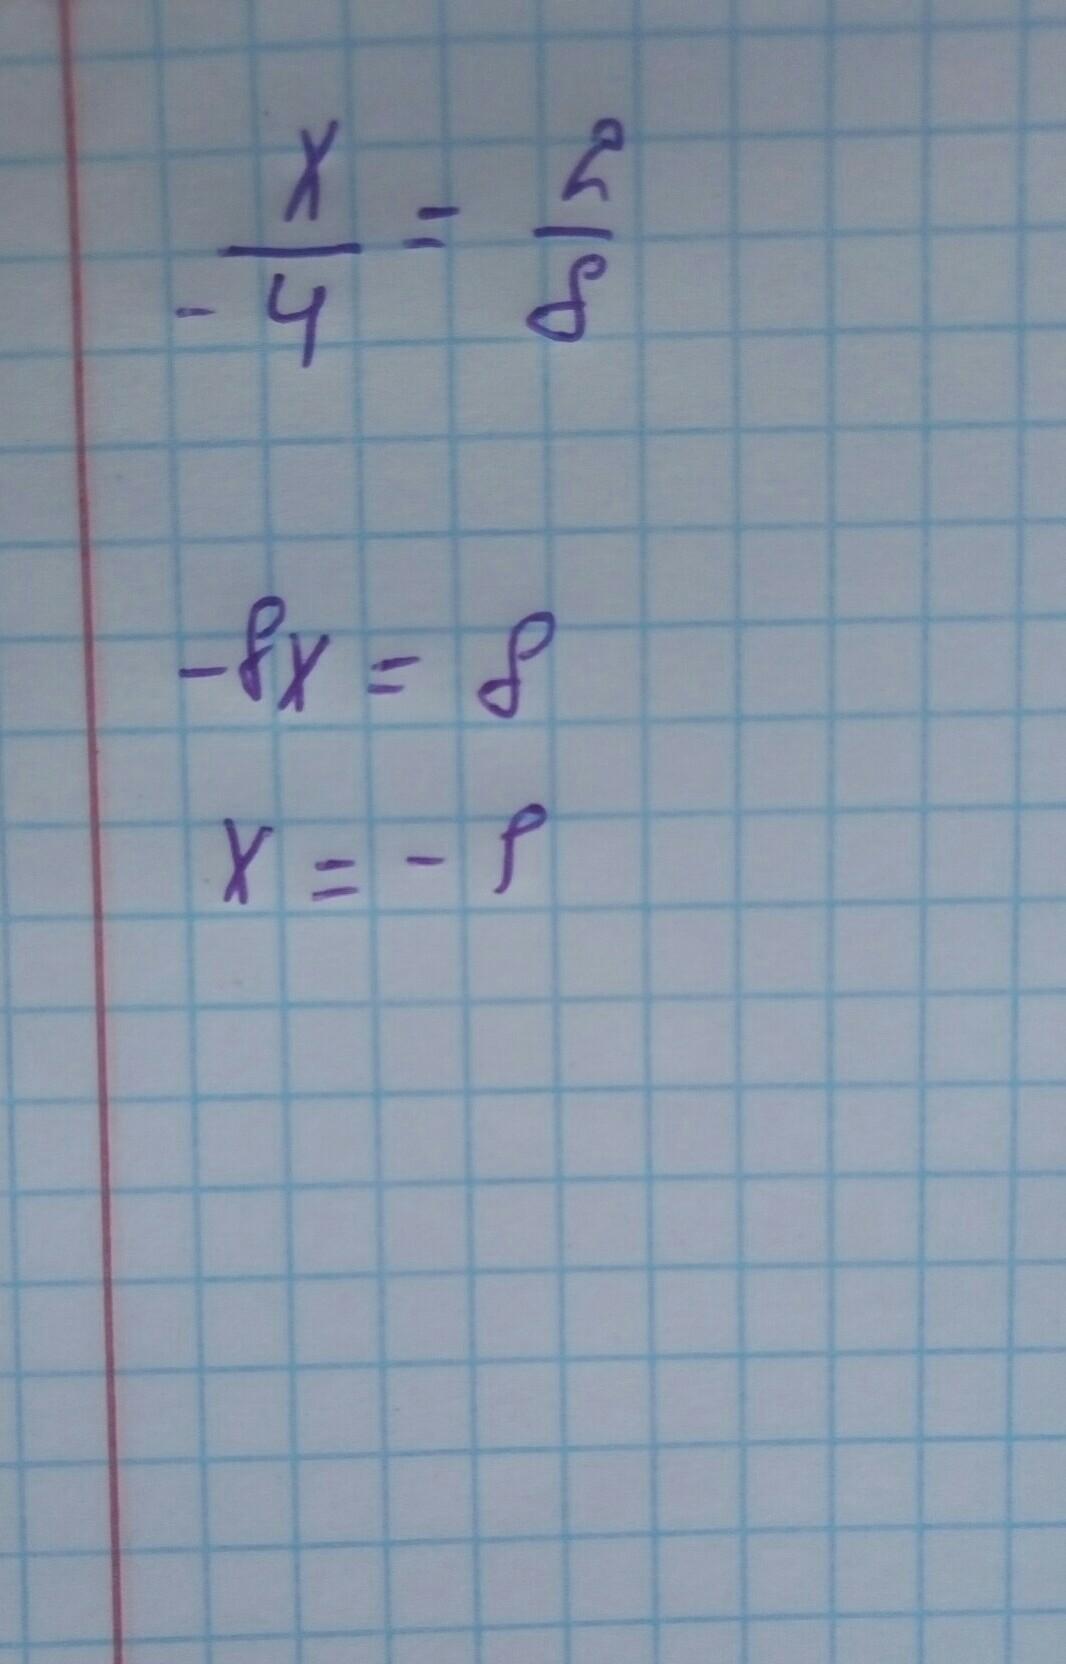 x/-4 = 2/8
-8x = 8
x = -